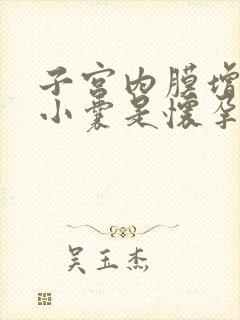 子宫内膜增
小囊是怀孕
吴玉杰